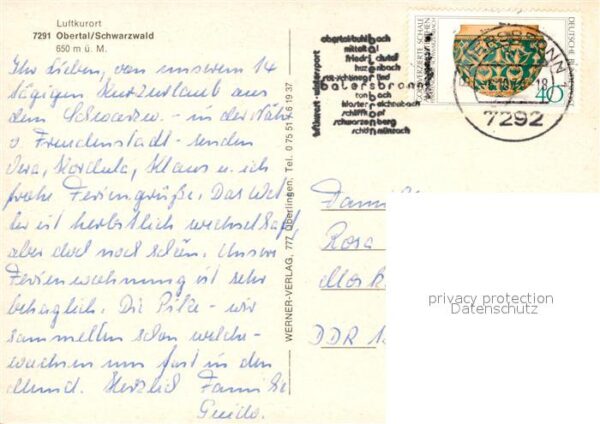 Luftkurort
7291 Obertal/Schwarzwald
650 m ü. M.
Ihr Lieben, von unserem 14
tägigen Kurzurlaub aus
dem Schwarzw. - in der Nähe
v. Freudenstadt - senden
Vera, Kordula, Klaus u. ich
frohe Feriengrüße. Das Wet-
ter ist herbstlich wechselhaft,
aber doch noch schön. Unsere
Ferienwohnung ist sehr
behaglich. Die Pilze - wir
sammelten schon welche -
wachsen uns fast in den
Mund. Herzlich Familie
Guido.
WERNER-VERLAG, 777 Überlingen, Tel. 0 75 51 / 6 19 37
obertal/buhlbach
mitteltal
friedrichstal
huzenbach
röt-schönegründ
baiersbronn
tonbach
kloster reichenbach
schliffkopf
schwarzenberg
schönmünzach
luftkurort - wintersport
BAIERSBRONN
7292
DEUTSCHE
40
Rosa
DDR
privacy protection
Datenschutz